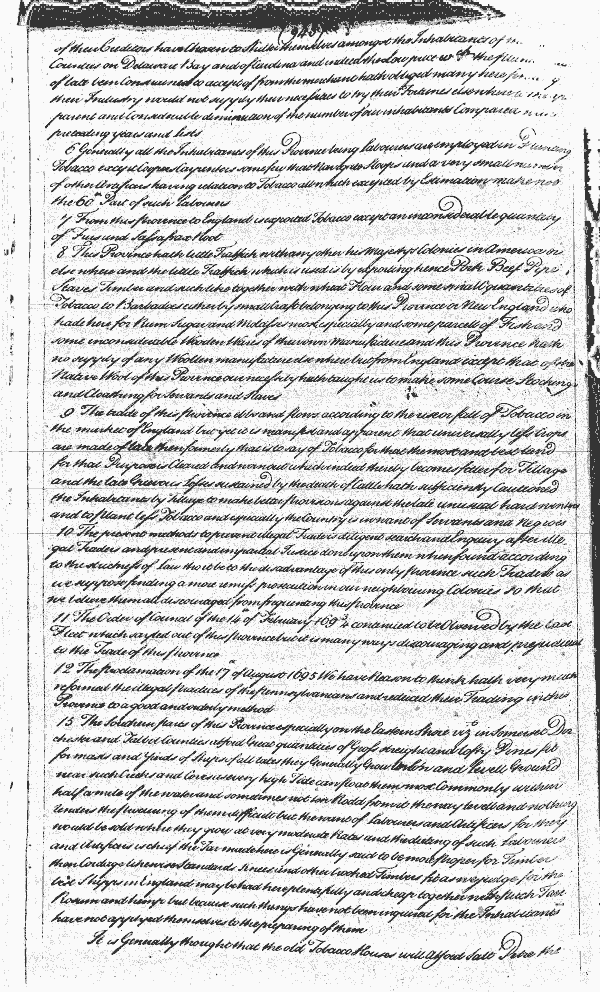 (943)
of their Creditors have Chosen to Shelter themselves amongst the Inhabitants of
Counties on Delaware Bay and of Carolina and indeed the Low price wch the
of late been Constrained to accept of from the merchants hath obliged many here
their Industry would not supply their necessities to try their Fortunes elsewhere
parent and Considerable diminution of the number of our inhabitants Compared
preceding years and lists
6 Generally all the Inhabitants of this Province being Labourers are employed in Planting
Tobacco except Coopers Carpenters some few that Navigate Sloops and a very small number
of other Artificers having relation to Tobacco all which except by Estimation make not
the 60th Part of such Labourers
7 From this province to England is exported Tobacco except an inconsiderable quantity
of Furs and Sassafrax Root
8 This Province hath little Traffick with any other his Majestys Colonies in America or
else where and the little Traffick which is used is by exporting hence Pork Beef Pipe
Staves Timber and such like together with wheat Flour and some small Quantities of
Tobacco to Barbados either by small Craft belonging to this Province or New England who
trade here for Rum Sugar and Molasses most especially and some parcells of Fish and
some inconsiderable Wooden Wares of their own manufacture and this Province hath
no supply of any Woollen manufacture elsewhere but from England except that of
Native Wool of this Province our necessity hath taught us to make some Course Stockings
and Cloathing for Servants and Slaves
9 The trade of this province ebbs and flows according to the rise or fall of Tobacco in
the market of England but yet it is manifest and apparent that universally less Crops
are made of late then formerly that is to say of Tobacco for that the most and best land
for that Purpose is Cleared and worn out which indeed thereby becomes fitter for Tillage
and the late Grievous Losses sustained by the death of Cattle hath sufficiently Cautioned
the Inhabitants by Tillage to make better provisions against the late unusual hard winters
and to plant less Tobacco and especially the Country is in want of Servants and Negroes
10 The present methods to prevent illegal Trade is diligent search and Enquiry after ille
gal Traders and present and impartial Justice done upon them when found according
to the strictness of Law tho it be to the disadvantage of this only province such Traders as
we suppose finding a more remiss prosecution in our neighbouring Colonies so that
we believe them all discouraged from frequenting this province
11 The Order of Council of the 14th of February 1693/4 continued to be Observed by the last
Fleet which sayled out of this province but it is many ways discouraging and prejudicial
to the Trade of this province
12 The proclamation of the 17th of August 1695 We have Reason to think hath very much
reformed the illegal practices of the Pennsylvanians and reduced their Trading into this
Province to a good and orderly method
13 The Southern parts of this Province especially on the Eastern Shore viz in Somerset Dor
chester and Talbot Counties afford Great quantities of Great streight and lofty Pines fit
for masts and Yards of Ships of all rates they Generally Grow on low and Levell Ground
near such Creeks and Coves as every high Tide can float them most Commonly within
half a mile of the water and sometimes not ten Rodd from it the way levell and nothing
renders the procuring of them difficult but the want of Labourers and Artificers for they
would be sold where they grow at very moderate Rates and the dieting of such Labourers
and Artificers is cheap the Tar made here is Generally said to be more proper for Timber
then Cordage likewise Standards Knees and other Crooked Timbers fit as we judge for the
best Shipps in England may be had here plentifully and cheap together with Pitch Tarr
Rosum and hemp but because such things have not been inquired for the Inhabitants
have not applyed themselves to the preparing of them
It is Generally thought that the old Tobacco Houses will afford Salt Petre the